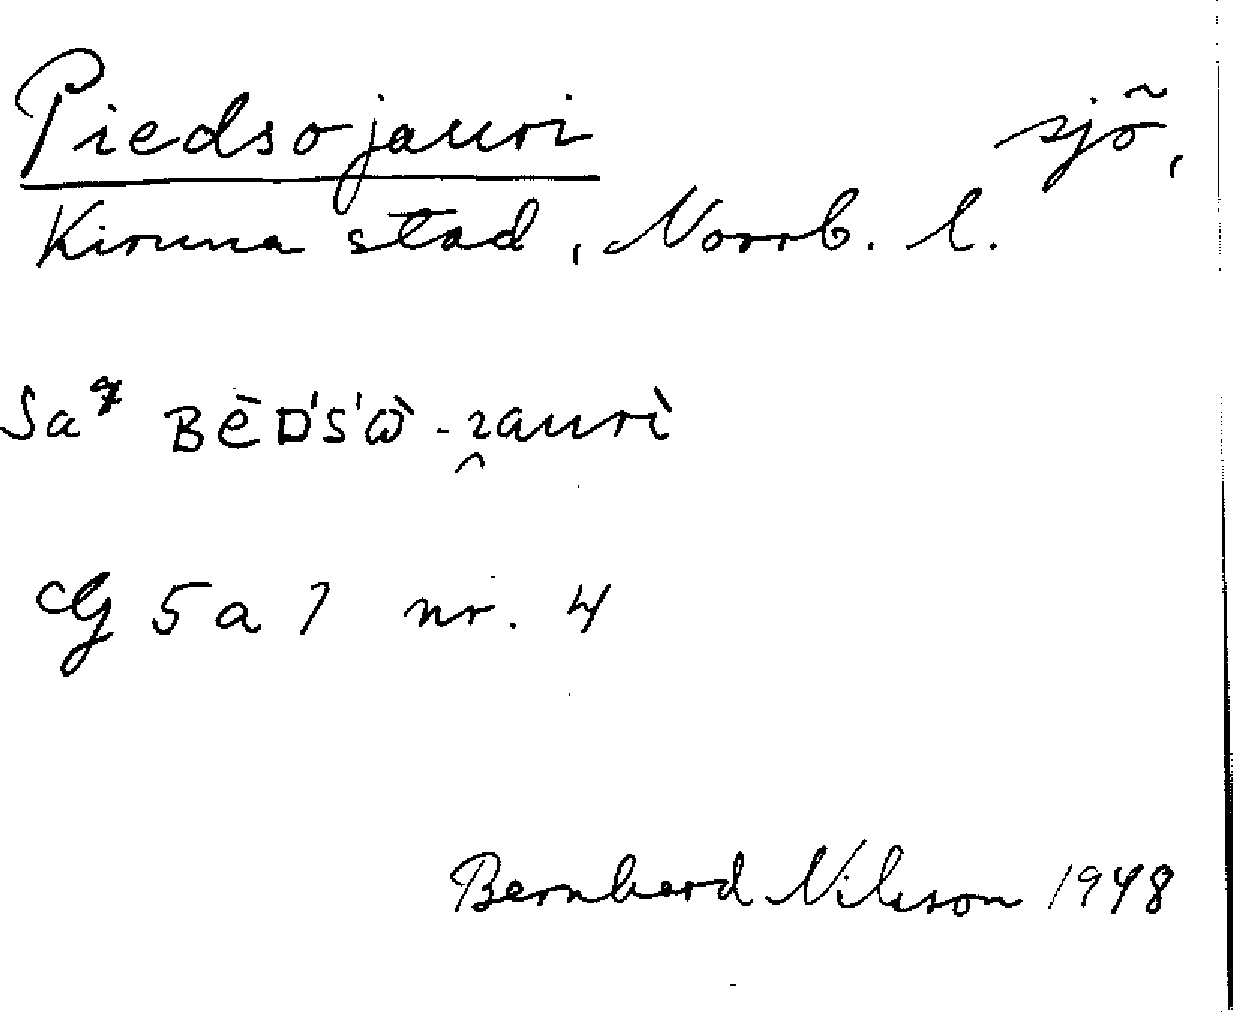 Piedsojauri sjö,
Kiruna stad, Norrb. l.
Sa
CG 5 a 7 nr. 4
Bernhard Nilsson 1948